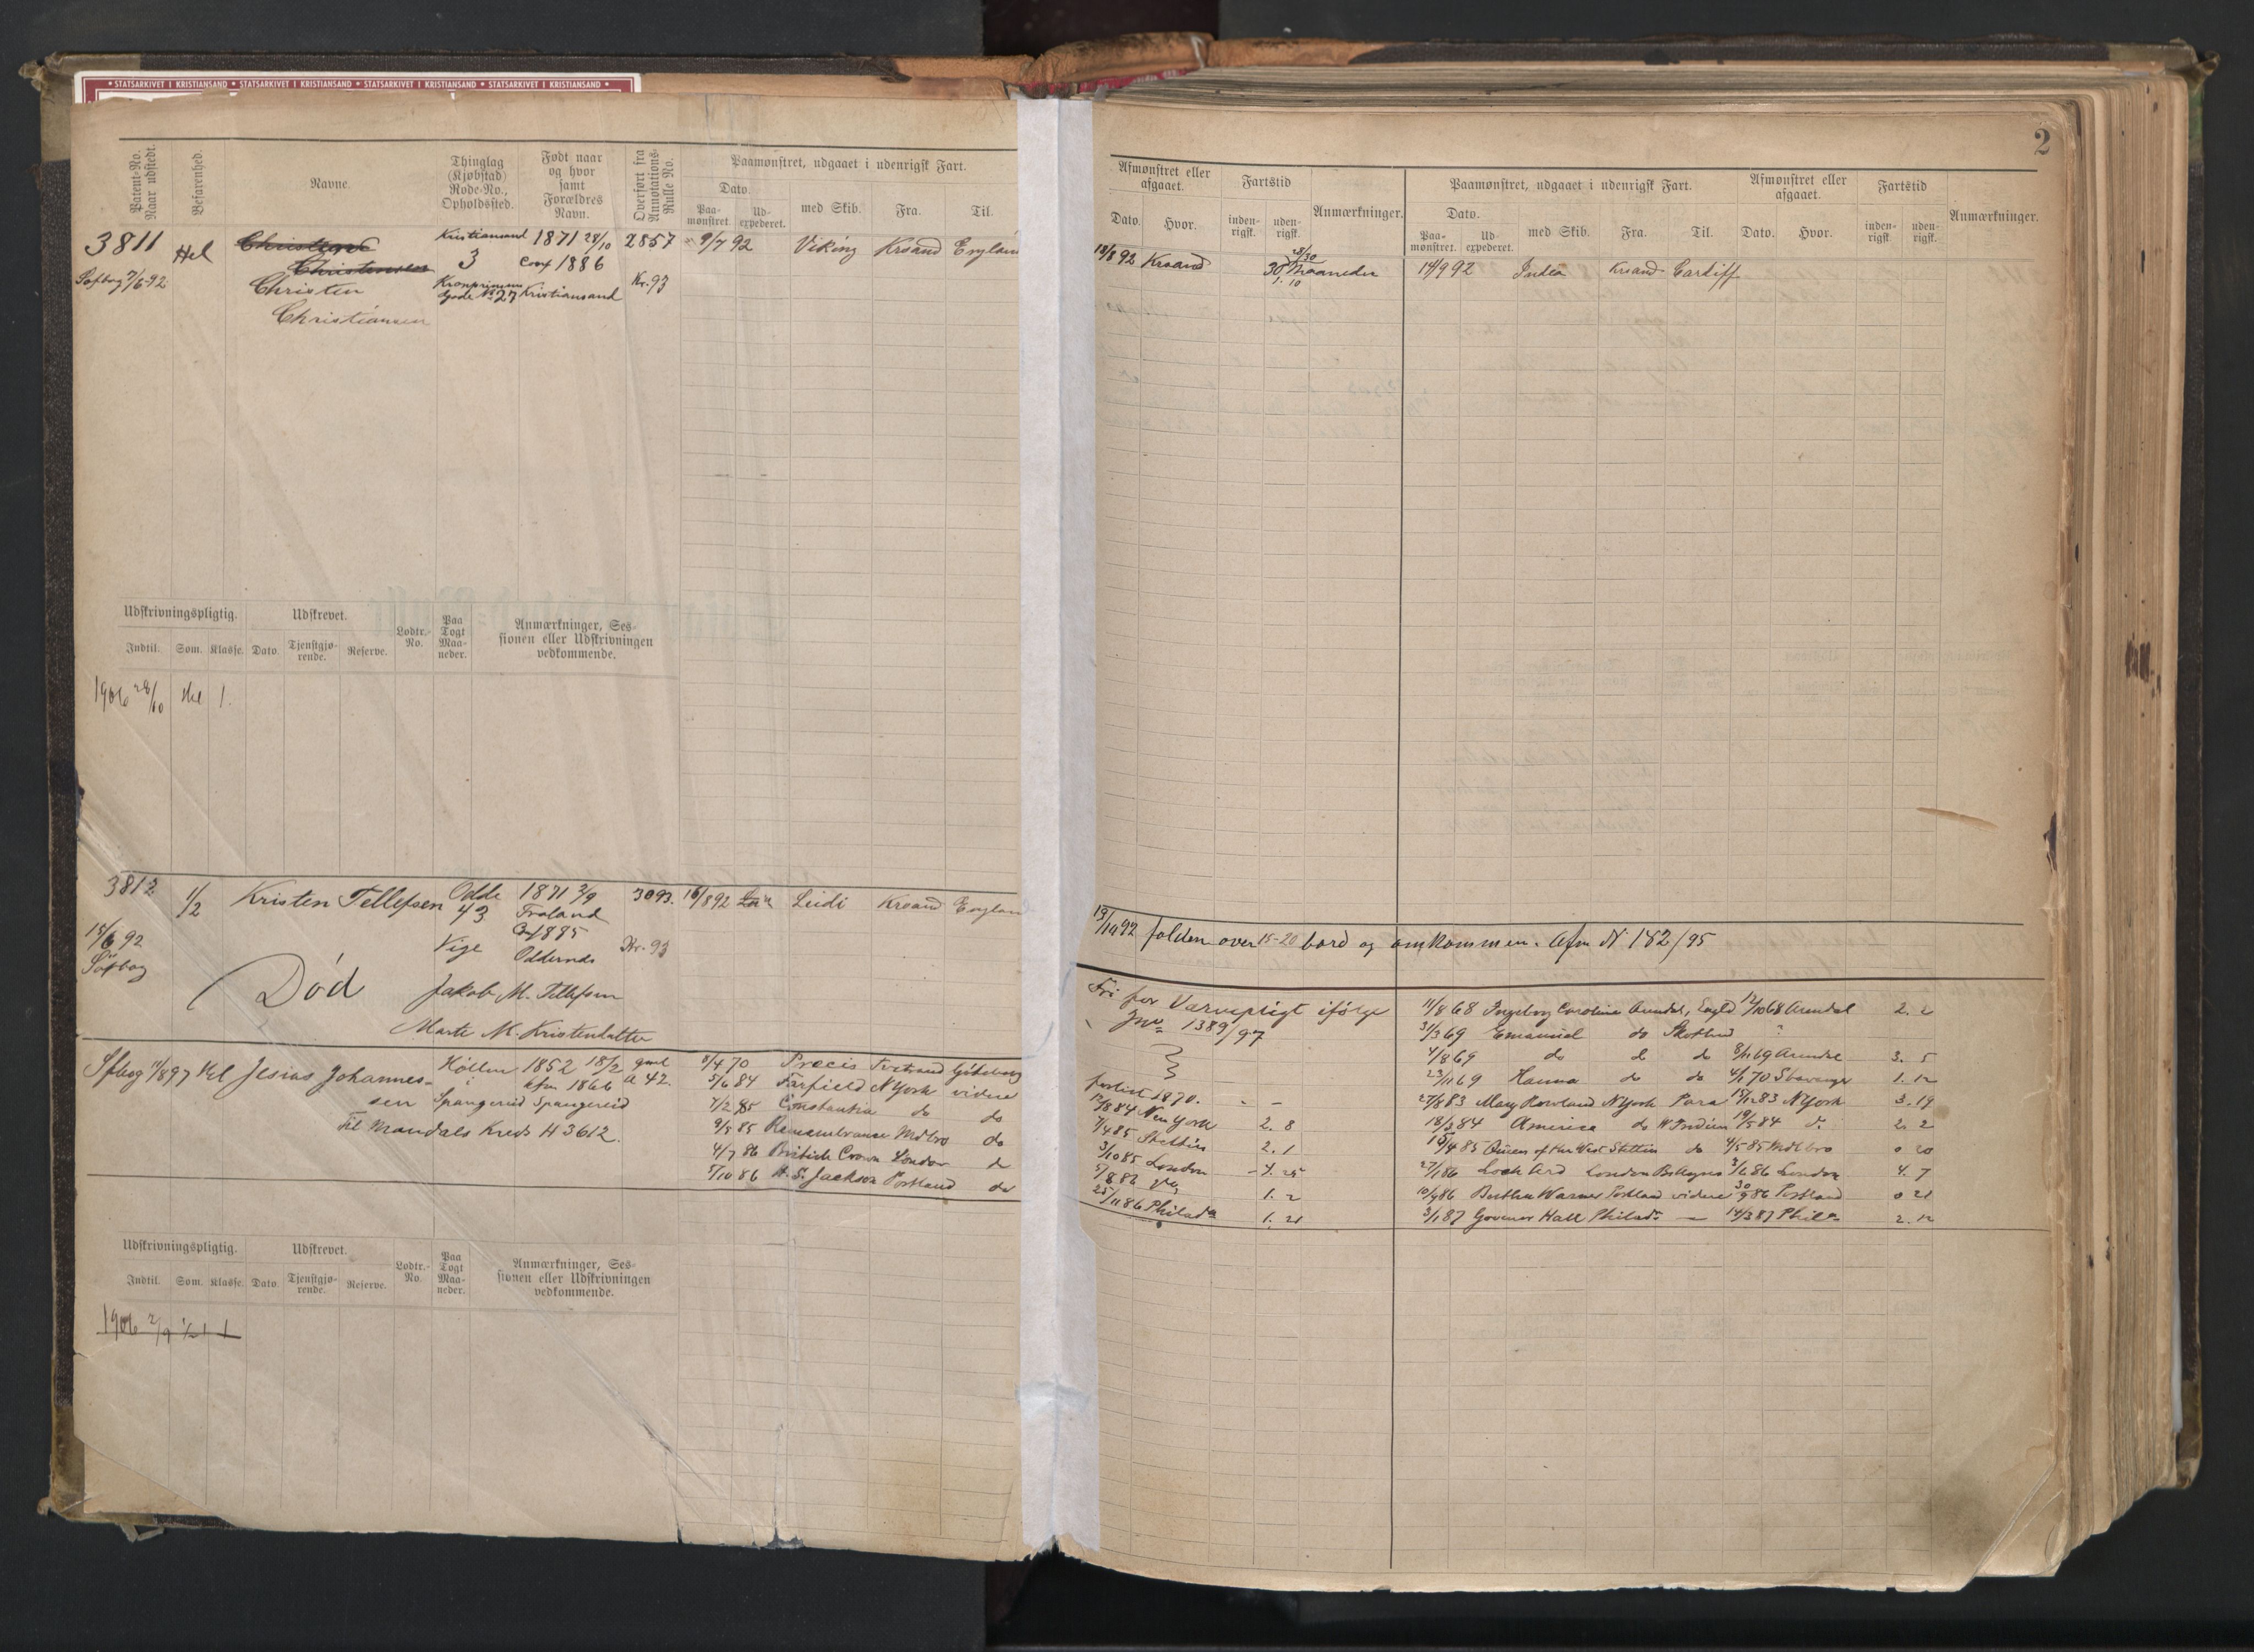 • STATSARKIVET I KRISTIANSAND • STATSARKIVET I KRISTIANSAND • STATSARKIVET I KRISTIANSAND • STATSARKIVET I KRISTIANSAND •
Patent-No. Naar udstedt.
Befarenhed.
Navne.
Thinglag (Kjøbstad) Rode-No., Opholdssted.
Født naar og hvor samt Forældres Navn.
Overført fra Annotations-Rulle No.
Paamønstret, udgaaet i udenrigsk Fart.
Dato.
Paa-mønstret.
Ud-expederet.
med Skib.
Fra.
Til.
3811 Hel Christiansand 3 1871 28/10 2857 9/7 92 Viking Krsand England
Christensen
Conf 1886
Søfbog 7/6-92 Christen Kronprinsens gade No 27 Kristiansand Kr. 93
Christiansen
Udskrivningspligtig.
Udskrevet.
Lodtr.-No.
Paa Togt Maa-neder.
Anmærkninger, Ses-sionen eller Udskrivningen vedkommende.
Indtil. Som. Klasse. Dato. Tjenstgjø-rende. Reserve.
1906 28/10 Hel 1.
3812 1/2 Kristen Tellefsen Odde 43 1871 2/9 3093. 16/8 92 Leidi Krsand England
Froland
Conf 1885
15/6 92 Vige Oddernes Kr. 93
Søfbog
Død Jakob M. Tellefsen
Marte M. Kristendatter
Sfbog 11/8 97 Hel Jesias Johannes- Höllen 1852 18/2 gml 8/4 70 Precis Tvetrand Göteborg
sen i kfm 1866 a 42. 5/6 84 Farfield NYork videre
Spangereid Spangereid 7/2 85 Constantia do do
Til Mandals Kreds H 3612. 9/5 85 Remembrance Mdlbro do
4/7 86 British Crown London do
5/10 86 H. S. Jackson Portland do
Udskrivningspligtig.
Udskrevet.
Lodtr.-No.
Paa Togt Maa-neder.
Anmærkninger, Ses-sionen eller Udskrivningen vedkommende.
Indtil. Som. Klasse. Dato. Tjenstgjø-rende. Reserve.
1906 2/9 1/2 1
2
Afmønstret eller afgaaet.
Fartstid
Anmærkninger.
Paamønstret, udgaaet i udenrigsk Fart.
Afmønstret eller afgaaet.
Fartstid
Anmærkninger.
Dato. Hvor. inden-rigsk. uden-rigsk.
Dato.
Paa-mønstret. Ud-expederet. med Skib. Fra. Til. Dato. Hvor. inden-rigsk. uden-rigsk.
18/8 92 Krsand 30 Maaneder 14/9 92 India Krsand Cardiff
1. 10
13/10 92 falden over 15-20 bord og omkommen. Afm N 182/95
Fri for Værnepligt ifølge 11/8 68 Ingeborg Caroline Arendal, Engld 12/10 68 Arendal 2. 2
Jno 1389/97 31/3 69 Emanuel do Skotland ?
4/8 69 do do do 8/11 69 Arendal 3. 5
23/11 69 Hanna do do 4/1 70 Stavanger 1. 12
forlist 1870. - - 27/8 83 Mary Rowland NYork Para 15/12 83 NYork 3. 19
12/8 84 New York 2. 8 18/3 84 America do W Indien 19/5 84 do 2. 2
7/4 85 Stettin 2. 1 15/4 85 Queen of the West Stettin do 4/5 85 Mdlbro 0 20
3/10 85 London - 4. 25 27/1 86 Loch Ard London 3/6 86 London 4. 7
1. 2 10/9 86 Portland videre 30/9 86 Portland 0 21
25/11 86 Philada 1. 21 3/1 87 Govenor Hall Philada — 14/3 87 Phila 2. 12